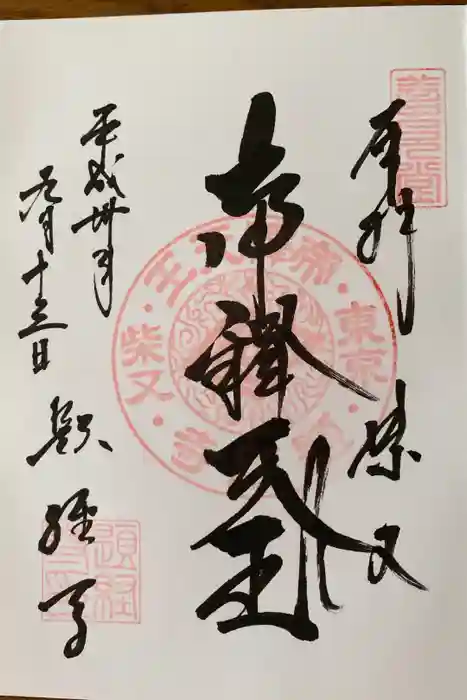 奉拝 柴又
帝釋天王
平成卅年
月十三日
題經寺
帝釋天王
東京
柴又
題経寺印